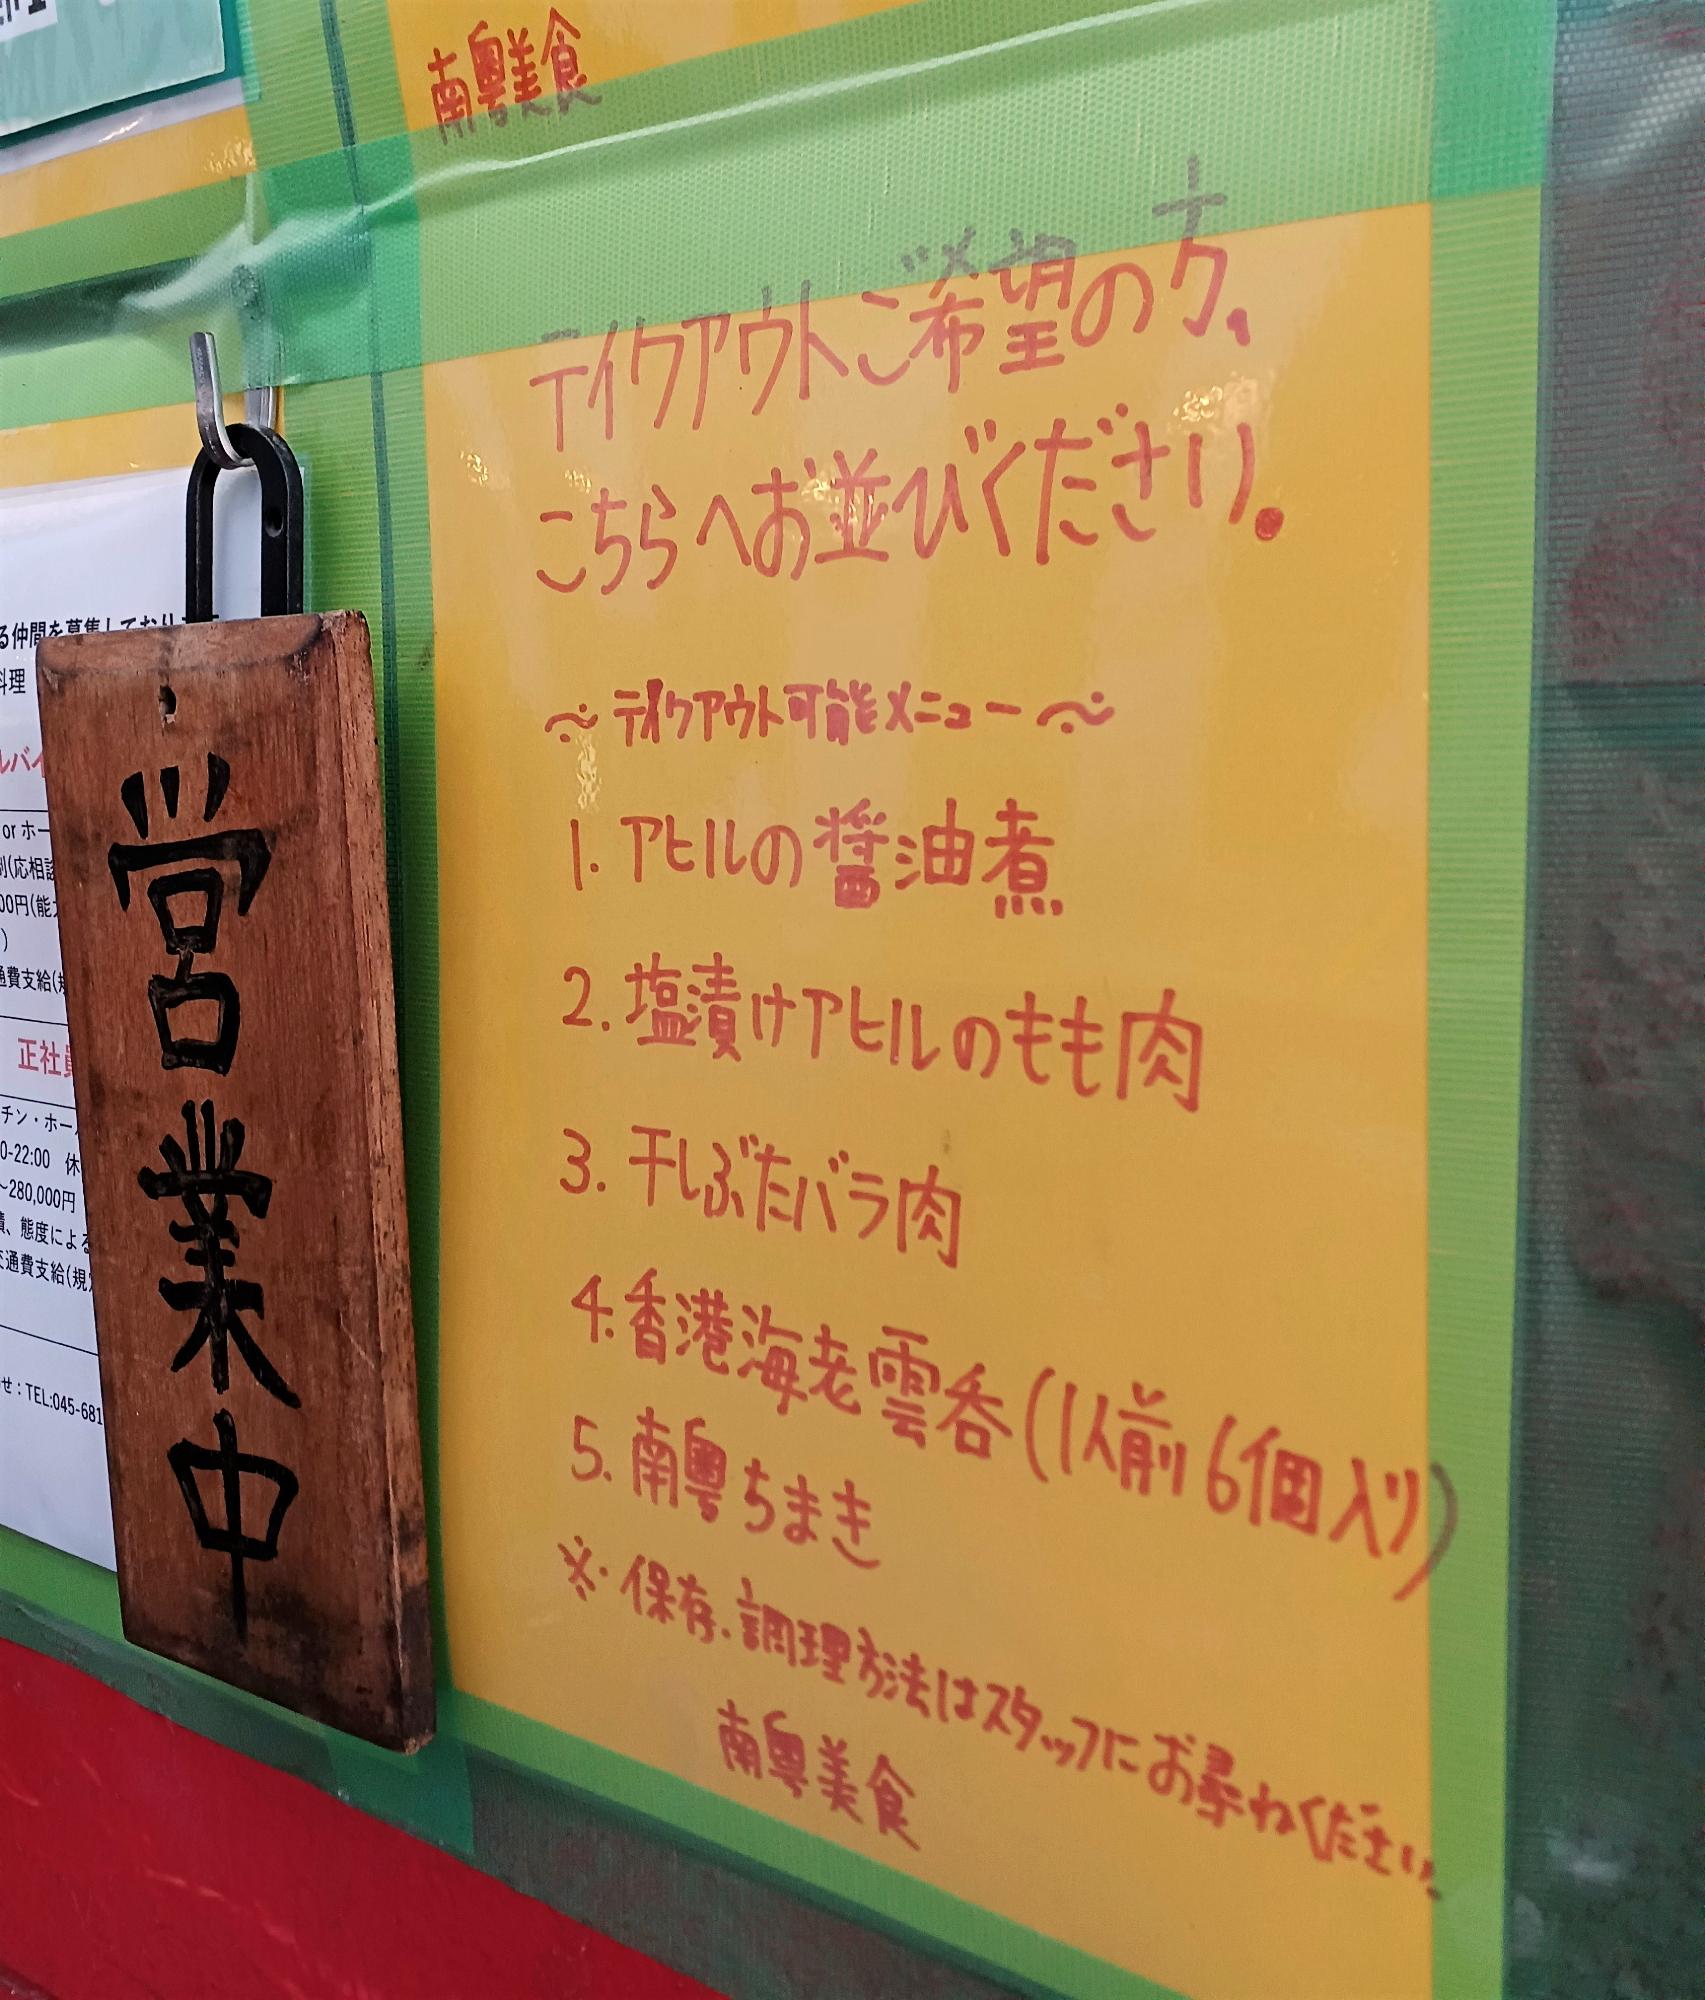 南粤美食
テイクアウトご希望の方、
こちらへお並びください。
～テイクアウト可能メニュー～
1. アヒルの醤油煮
2. 塩漬けアヒルのもも肉
3. 干しぶたバラ肉
4. 香港海老雲呑(1人前6個入り)
5. 南粤ちまき
※ 保存、調理方法はスタッフにお尋ねください。
南粤美食
営業中
る仲間を募集しております
料理
ルバイ
or ホー
制(応相談
00円(能
)
通費支給(規
正社員
チン・ホー
0-22:00 休
～280,000円
績、態度による
交通費支給(規定
せ：TEL:045-681